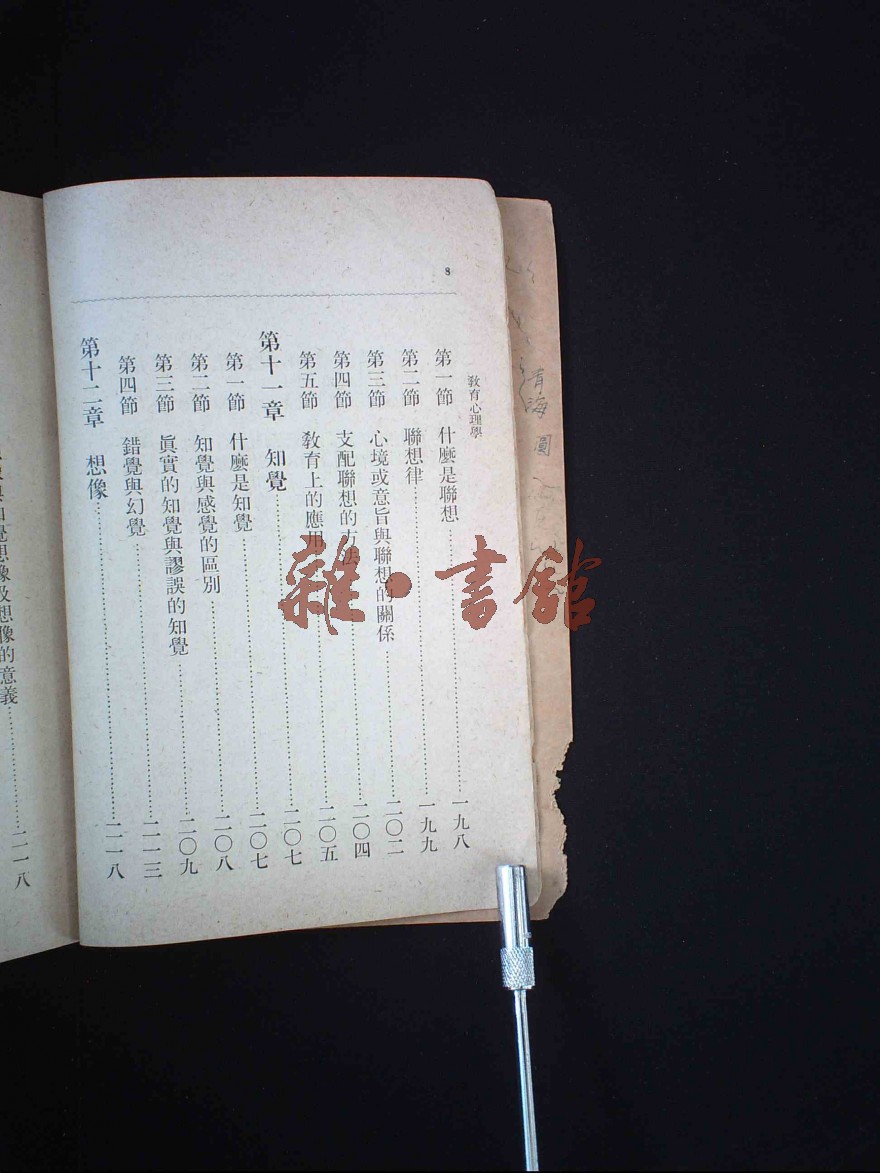 8
教育心理學
第一節 什麼是聯想 一九八
第二節 聯想律 一九九
第三節 心境或意旨與聯想的關係 二〇二
第四節 支配聯想的方法 二〇四
第五節 教育上的應用 二〇五
第十一章 知覺 二〇七
第一節 什麼是知覺 二〇七
第二節 知覺與感覺的區別 二〇八
第三節 眞實的知覺與謬誤的知覺 二〇九
第四節 錯覺與幻覺 二一三
第十二章 想像 二一八
覺想像及想像的意義 二一八
雜·書館
清海
圓